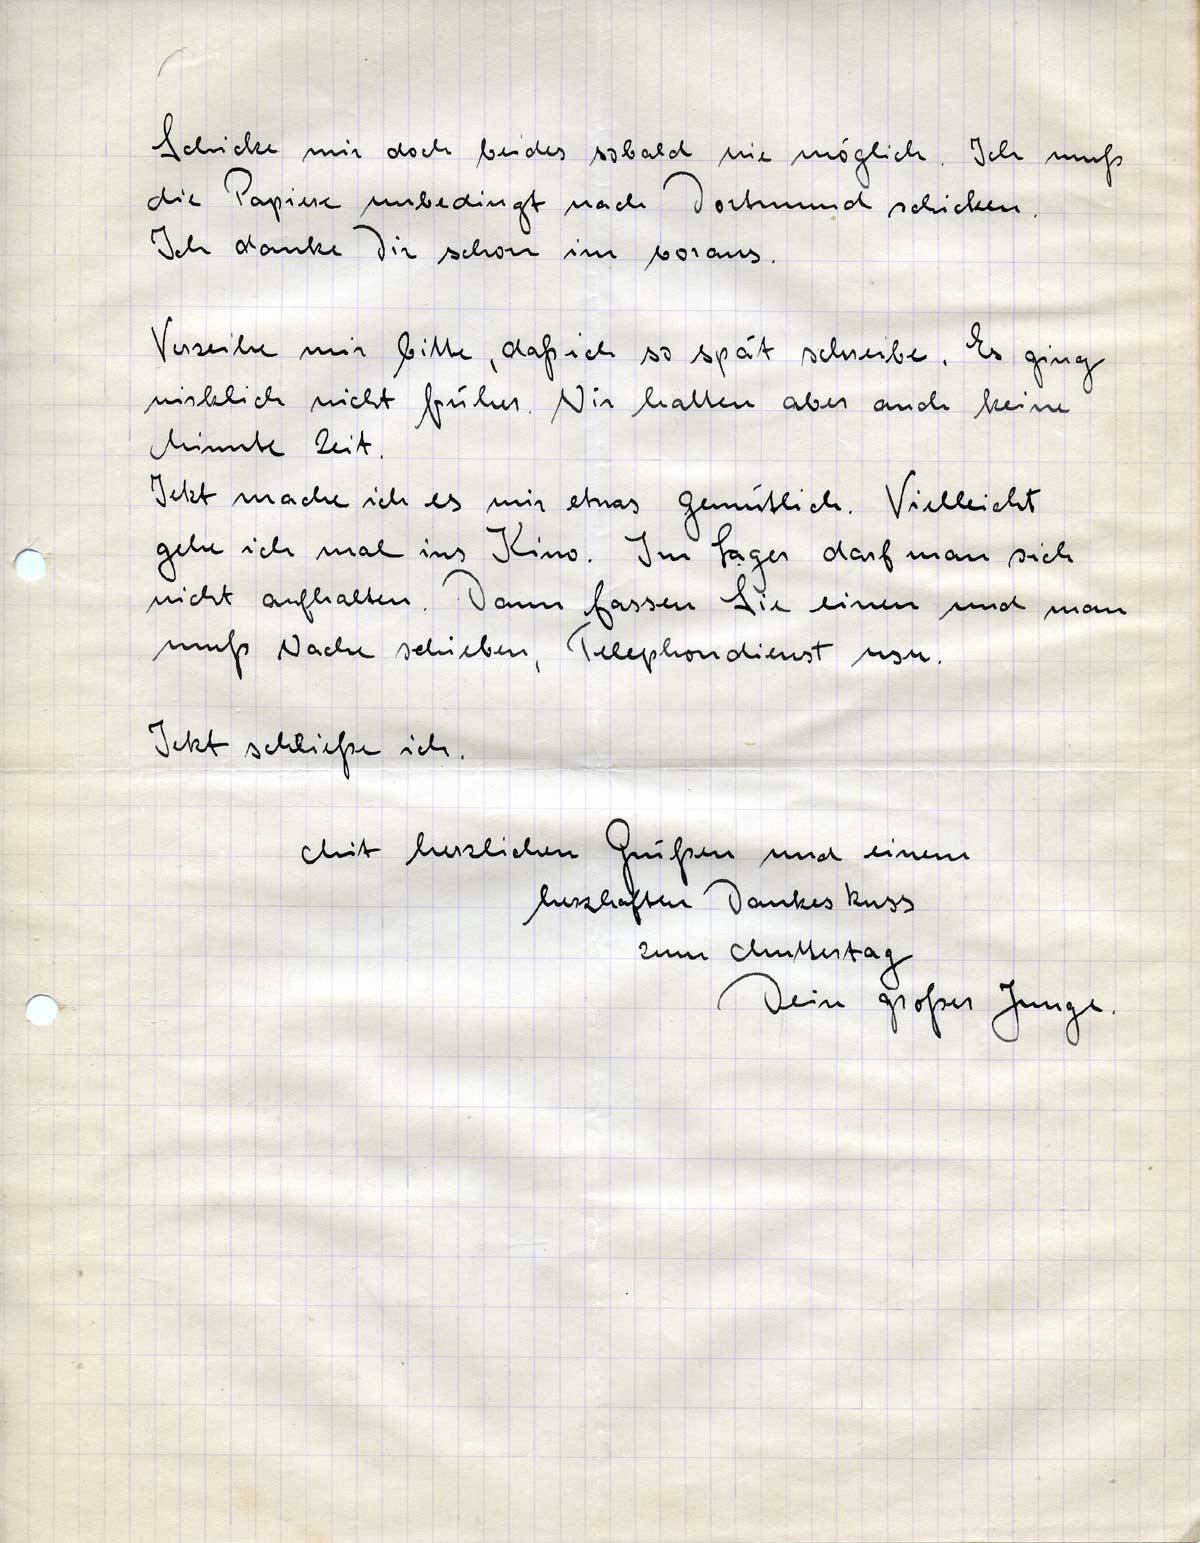 Schicke mir doch beides sobald wie möglich. Ich muß
die Papiere unbedingt nach Dortmund schicken.
Ich danke Dir schon im voraus.
Verzeihe mir bitte, daß ich so spät schreibe. Es ging
wirklich nicht früher. Wir hatten aber auch keine
Minute Zeit.
Jetzt mache ich es mir etwas gemütlich. Vielleicht
gehe ich mal ins Kino. Im Lager darf man sich
nicht aufhalten. Dann fassen Sie einen und man
muß Wache schieben, Telephondienst usw.
Jetzt schließe ich.
Mit herzlichen Grüßen und einem
herzhaften Dankeskuss
zum Muttertag
Dein großer Junge.